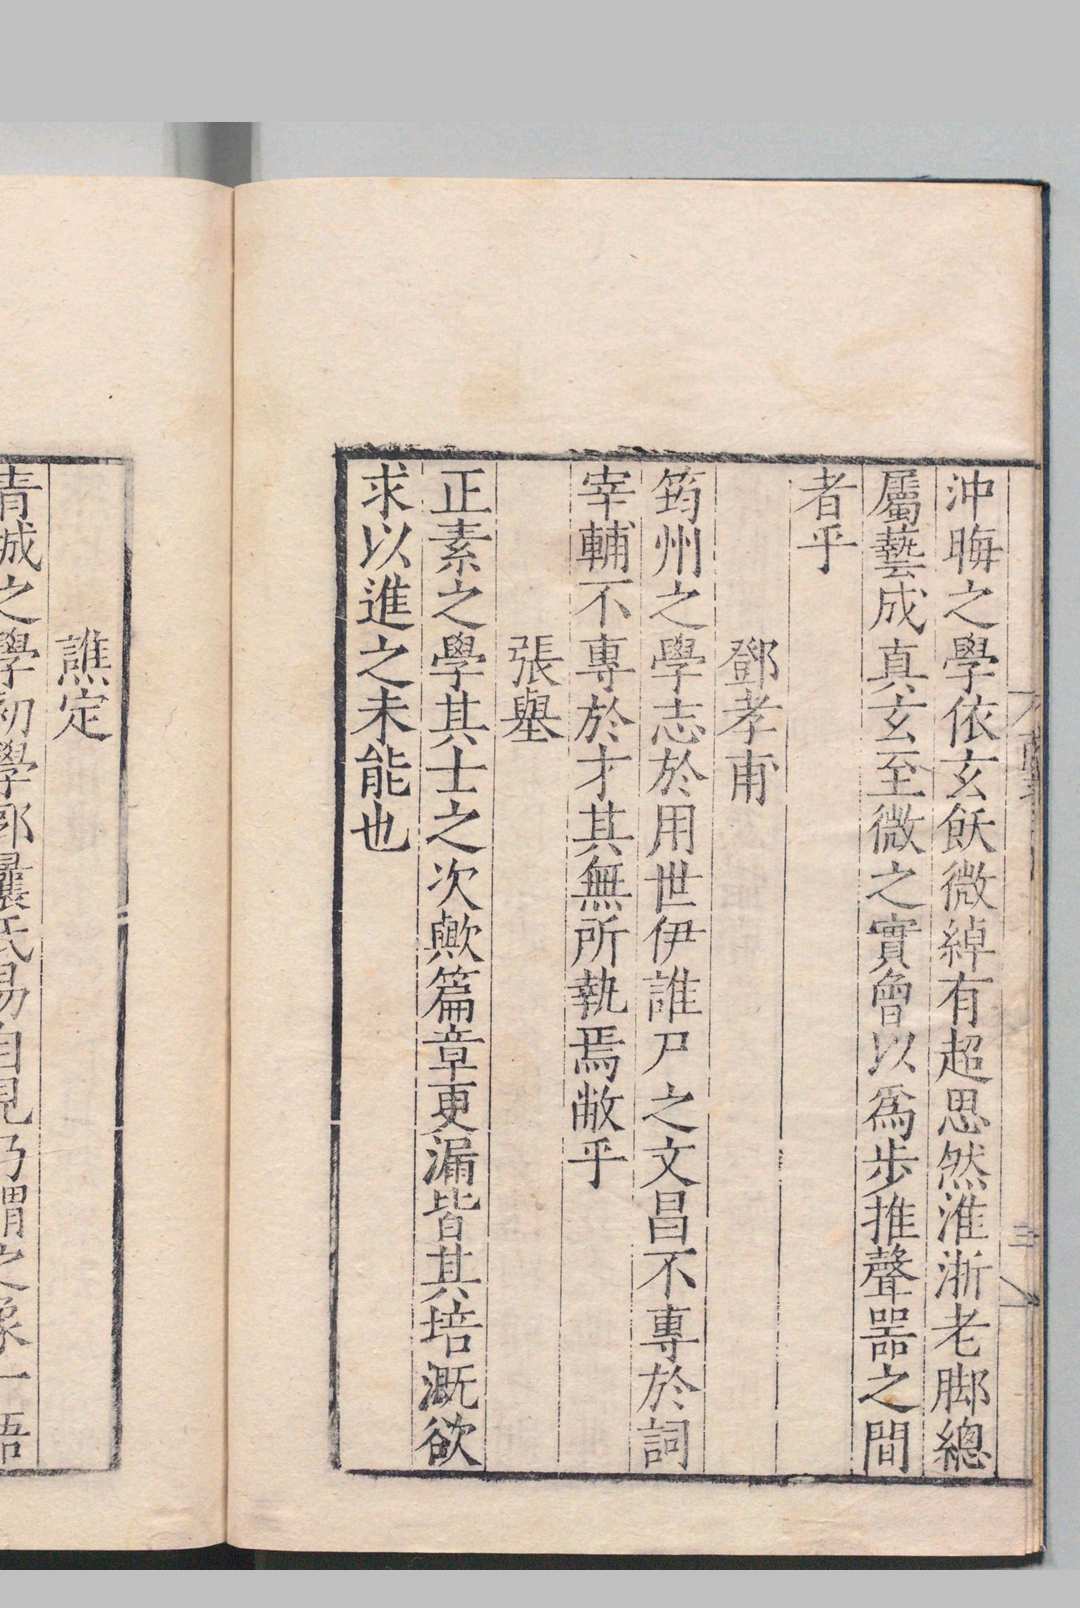 沖晦之學依玄飫微綽有超思然淮浙老脚總
屬藝成真玄至微之實會以爲步推聲器之間
者乎
鄧孝甫
筠州之學志於用世伊誰尸之文昌不專於詞
宰輔不專於才其無所執焉敝乎
張舉
正素之學其士之次歟篇章更漏皆其培溉欲
求以進之未能也
譙定
青城之學初學郭曩氏易自見乃謂之象一語